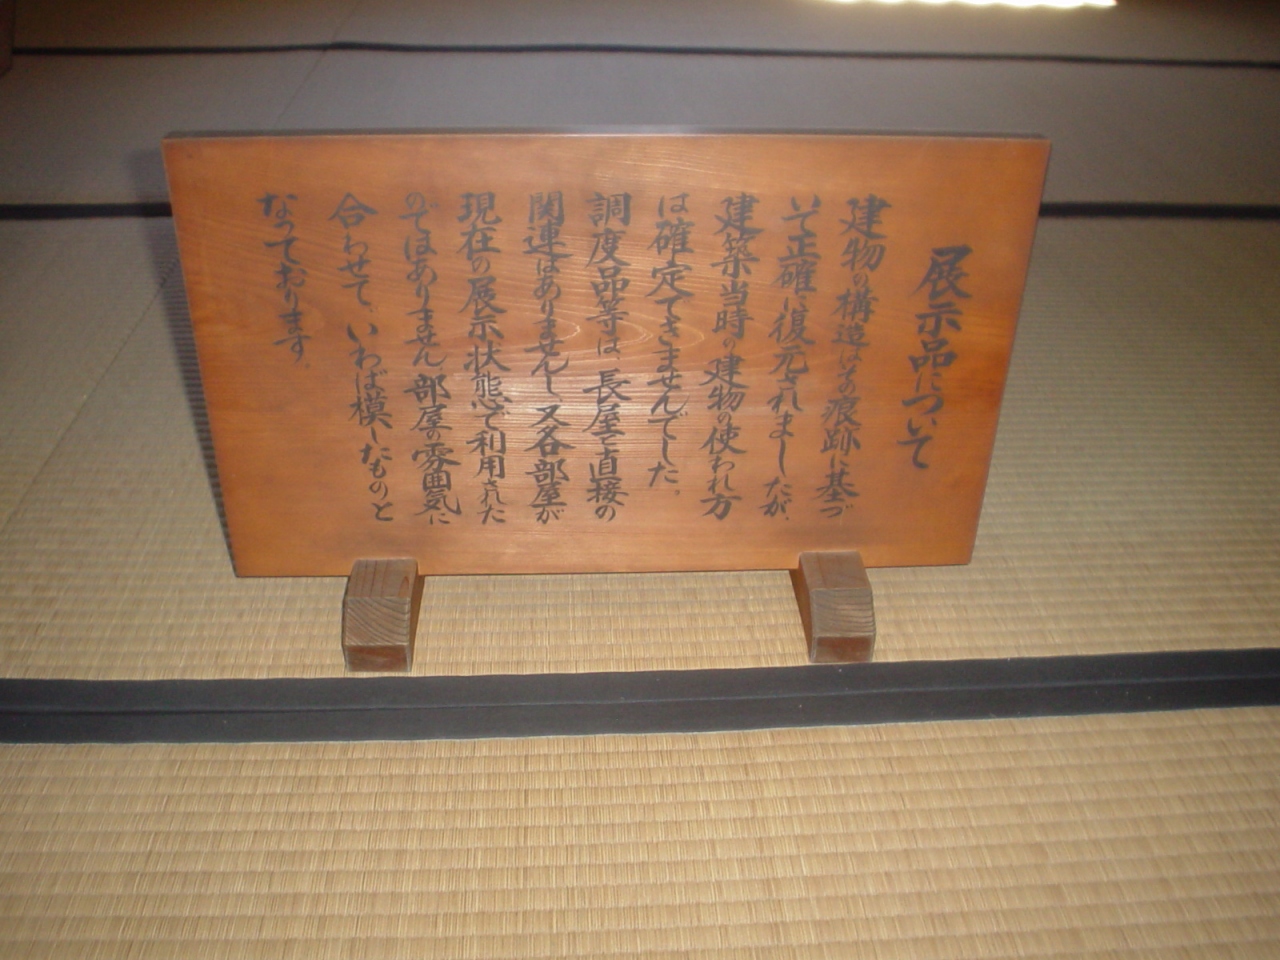 展示品について
建物の構造はその痕跡に基づ
いて正確に復元されましたが、
建築当時の建物の使われ方
は確定できませんでした。
調度品等は、長屋で直接の
関連はありませんし又各部屋が
現在の展示状態で利用された
のではありません、部屋の雰囲気に
合わせて、いわば模したものと
なっております。